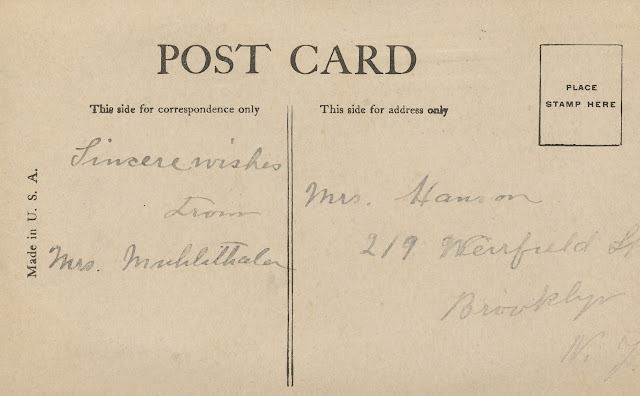 POST CARD
PLACE
STAMP HERE
This side for correspondence only
This side for address only
Made in U. S. A.
Sincere wishes
From
Mrs. Muhlithaler
Mrs. Hanson
219 Weirfield St
Brooklyn
N. Y.